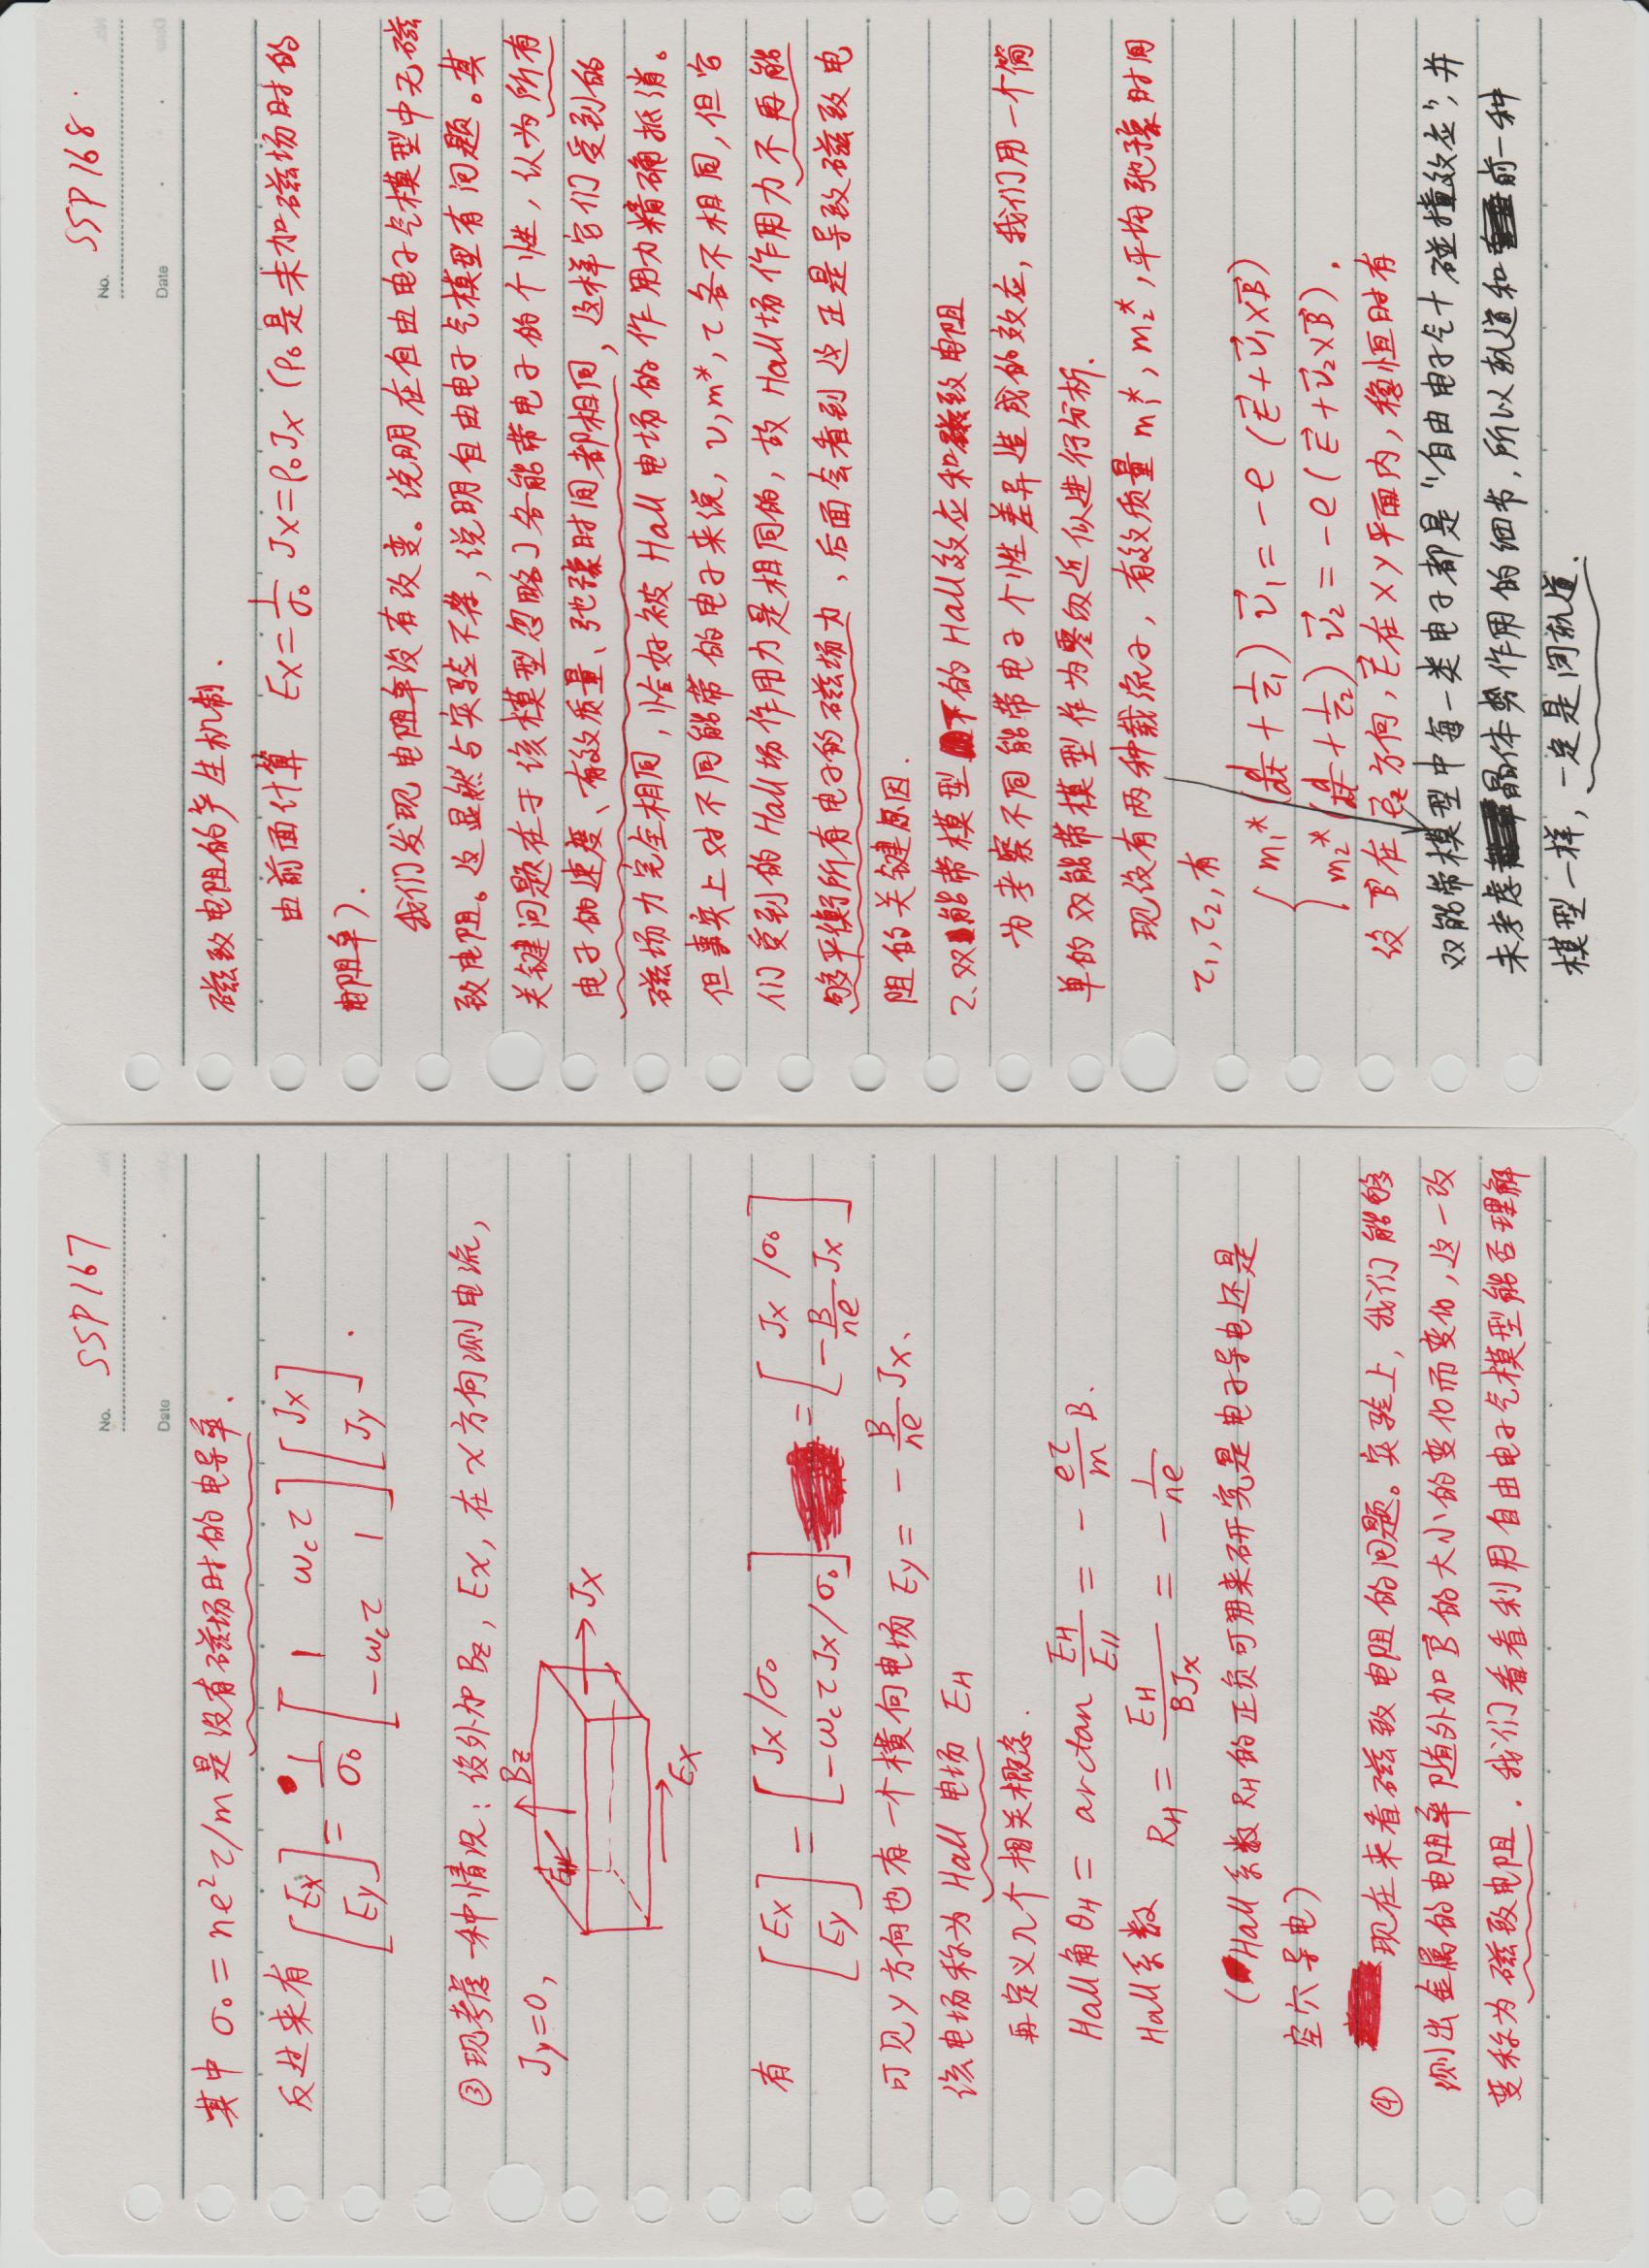 No. SSP167
Date
其中 σ₀ = ne²τ/m 是没有磁场时的电导率.
反过来有 [Ex Ey] = 1/σ₀ [1 ωcτ -ωcτ 1] [Jx Jy] .
③ 现考虑一种情况: 设外加 Bz, Ex, 在 x 方向测电流,
Jy=0,
Bz
EH
Jx
Ex
有 [Ex Ey] = [Jx/σ₀ -ωcτJx/σ₀] = [Jx/σ₀ -B/ne Jx]
可见 y 方向也有一个横向电场 Ey = -B/ne Jx、
该电场称为 Hall 电场 EH
再定义几个相关概念.
Hall角 θH = arctan EH/E// = - eτ/m B.
Hall系数 RH = EH/BJx = - 1/ne
(Hall 系数 RH 的正负可用来研究是电子导电还是
空穴导电)
④ 现在来看磁致电阻的问题。实验上, 我们能够
测出金属的电阻率随外加 B⃗ 的大小的变化而变化, 这一改
变称为磁致电阻. 我们看看利用自由电子气模型能否理解
No. SSP168.
Date
磁致电阻的产生机制.
由前面计算 Ex = 1/σ₀ Jx = ρ₀Jx (ρ₀ 是未加磁场时的
电阻率).
我们发现电阻率没有改变。说明在自由电子气模型中无磁
致电阻。这显然与实验不符, 说明自由电子气模型有问题。其
关键问题在于该模型忽略了各能带电子的个性, 认为所有
电子的速度、有效质量、弛豫时间都相同, 这样它们受到的
磁场力完全相同, 恰好被 Hall 电场的作用力精确抵消。
但事实上对不同能带的电子来说, v, m*, τ 各不相同, 但它
们受到的 Hall场作用力是相同的, 故 Hall场作用力不再能
够平衡所有电子的磁场力, 后面会看到这正是导致磁致电
阻的关键原因.
2. 双能带模型下的 Hall 效应和磁致电阻
为考察不同能带电子个性差异造成的效应, 我们用一个简
单的双能带模型作为零级近似进行分析.
现设有两种载流子, 有效质量 m₁*, m₂*, 平均弛豫时间
τ₁, τ₂, 有
{ m₁* (d/dt + 1/τ₁) v⃗₁ = -e (E⃗ + v⃗₁×B⃗)
m₂* (d/dt + 1/τ₂) v⃗₂ = -e (E⃗ + v⃗₂×B⃗).
设 B⃗ 在 e⃗z 方向, E⃗ 在 xy 平面内, 稳恒时有
双能带模型中每一类电子都是“自由电子气+碰撞效应”, 并
未考虑晶体势作用的细节, 所以轨道和前一种
模型一样, 一定是闭轨道.